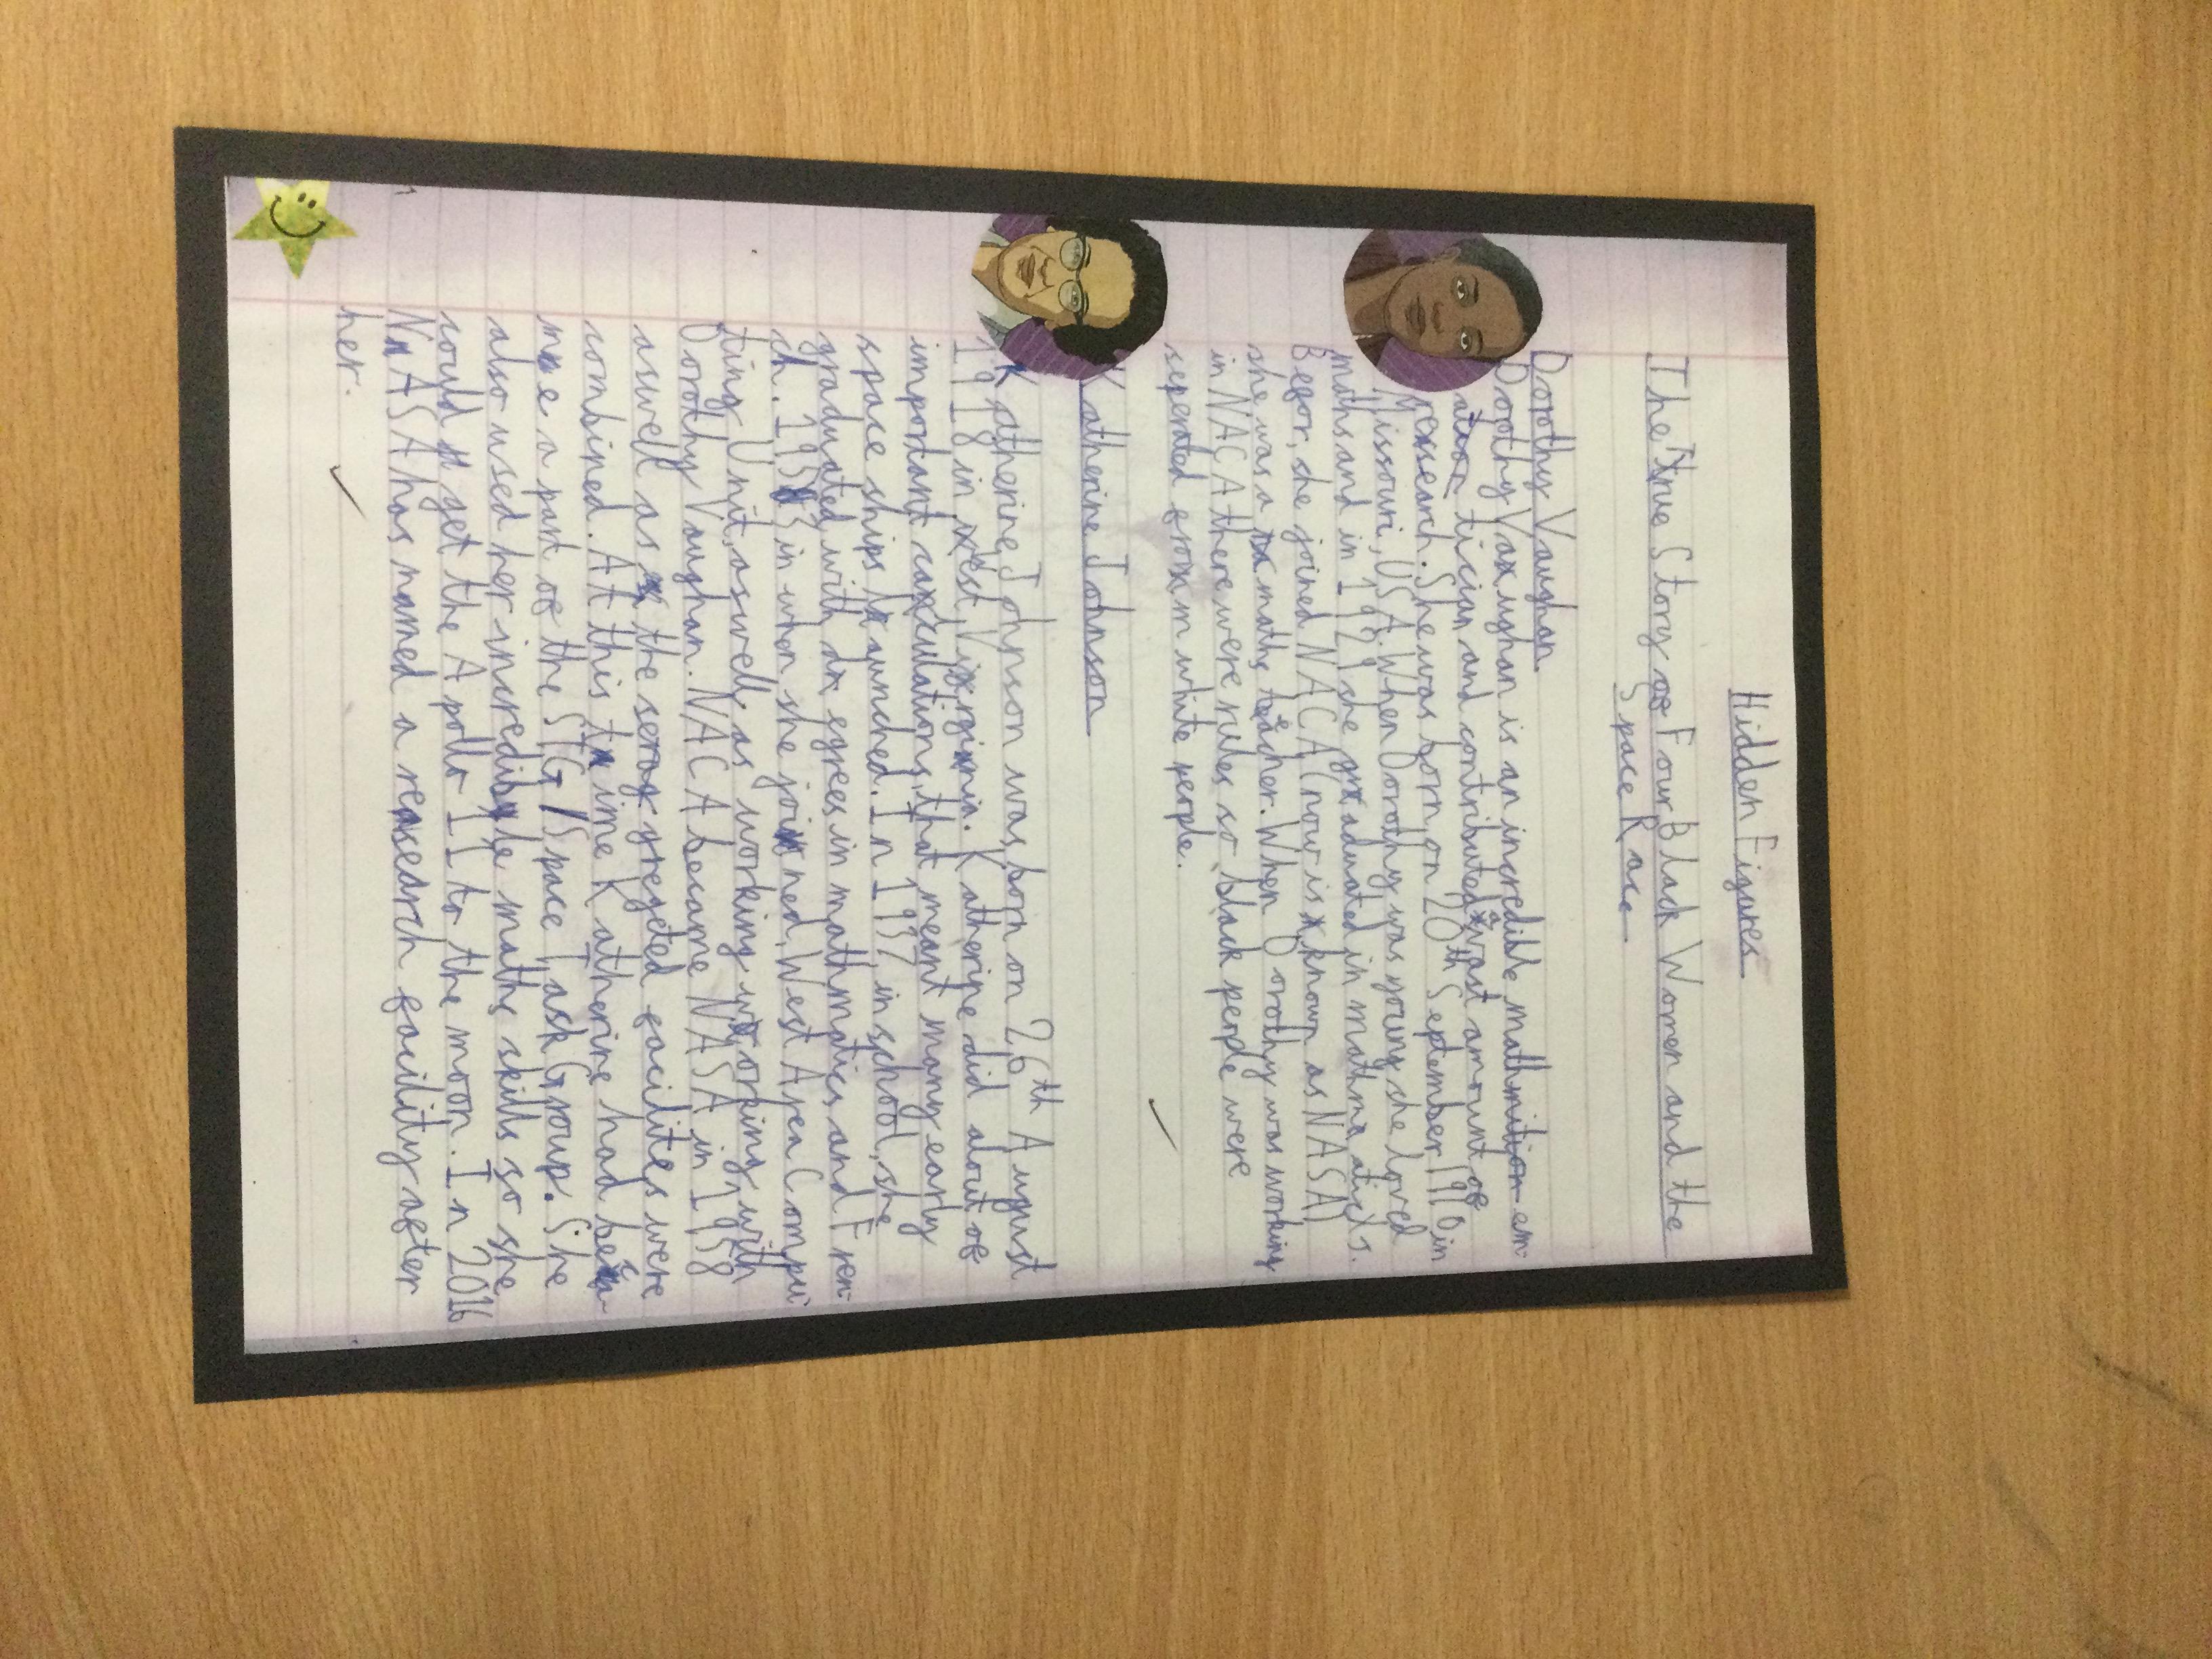 Hidden Figures
The True Story of Four Black Women and the
Space Race
Dorothy Vaughan
Dorothy Vaughan is an incredible mathmition em-
ation tician and contributed a vast amount of
research. She was born on 20th September 1910 in
Missouri, USA. When Dorothy was young she loved
maths and in 1929 she graduated in mathmaticks.
Befor, she joined NACA (now is known as NASA)
she was a maths teacher. When Dorothy was working
in NACA there were rules so black people were
seperated from white people.
Katherine Johnson
Katherine Johnson was born on 26th August
1918 in West Virginia. Katherine did alout of
important calculations that meant many early
space ships launched. In 1937, in school, she
graduated with degrees in mathmatics and Fren-
ch. 1953 in when she joined West Area Compu
ting Unit, aswell as working working with
Dorothy Vaughan. NACA became NASA in 1958
aswell as the segregeted facilites were
combined. At this time Katherine had beca-
me a part of the STG/Space Task Group. She
also used her incredible maths skills so she
could get the Apollo 11 to the moon. In 2016
NASA has named a research facility after
her.